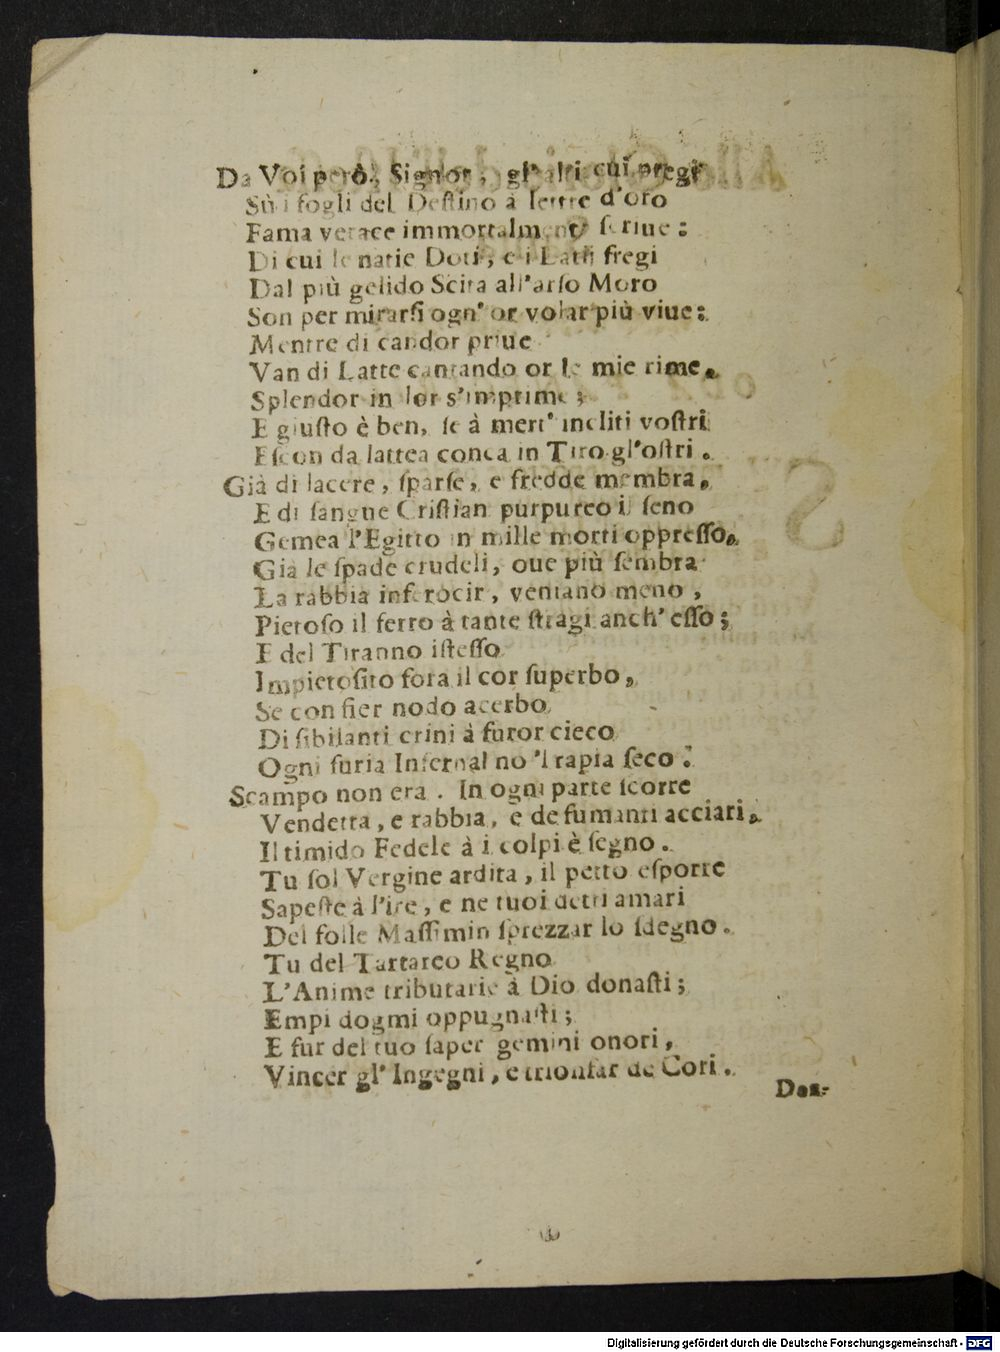 Da Voi però, Signor, gl'altri cui pregi
Sù i fogli del Deſtino à lettre d'oro
Fama verace immortalment' ſcriue:
Di cui le natie Doti, e i Latti fregi
Dal più gelido Scita all'arſo Moro
Son per mirarſi ogn' or volar più viue:
Mentre di candor priue
Van di Latte cantando or le mie rime,
Splendor in lor s'imprime;
E giuſto è ben, ſe à mert' incliti voſtri
Eſcon da lattea conca in Tiro gl'oſtri.
Già di lacere, ſparſe, e fredde membra,
E di ſangue Criſtian purpureo il ſeno
Gemea l'Egitto in mille morti oppreſſo,
Gia le ſpade crudeli, oue più ſembra
La rabbia inferocir, veniano meno,
Pietoſo il ferro à tante ſtragi anch' eſſo;
E del Tiranno iſteſſo
Impietoſito fora il cor ſuperbo,
Se con fier nodo acerbo
Di ſibilanti crini à furor cieco
Ogni furia Infernal no 'l rapia ſeco.
Scampo non era. In ogni parte ſcorre
Vendetta, e rabbia, e de fumanti acciari,
Il timido Fedele à i colpi è ſegno.
Tu ſol Vergine ardita, il petto eſporre
Sapeſte à l'ire, e ne tuoi detti amari
Del folle Maſſimin ſprezzar lo ſdegno.
Tu del Tartareo Regno
L'Anime tributarie à Dio donaſti;
Empi dogmi oppugnaſti;
E fur del tuo ſaper gemini onori,
Vincer gl' Ingegni, e trionfar de Cori.
Digitalisierung gefördert durch die Deutsche Forschungsgemeinschaft - DFG